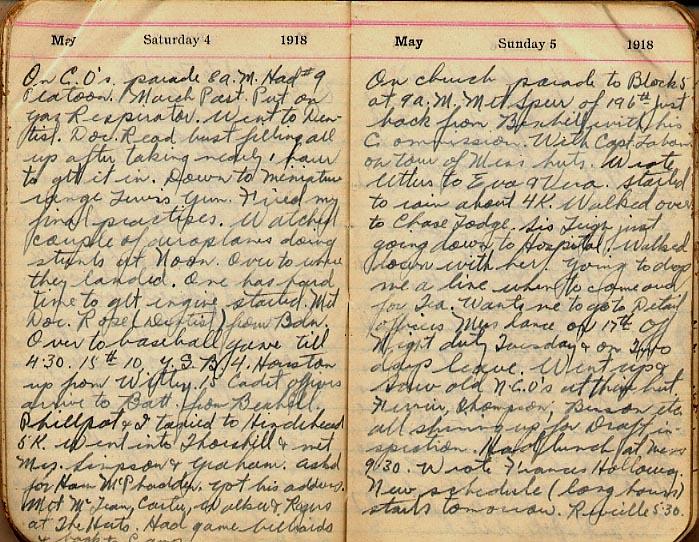 May Saturday 4 1918
On C.O's. parade 8 a.M. Had #9
Platoon. March Past. Put on
gaz Respirator. Went to Den-
tist. Doc. Read bust filling all
up after taking nearly 1 hour
to get it in. Down to Meniature
range Lewis Gun. Fired my
final practises. Watched
couple of aeroplanes doing
stunts at Noon. Over to where
they landed. One has hard
time to get engine started. Met
Doc. Rose (Dentist) from Bdn.
Over to baseball game till
4.30. 15th 10, Y.S.B. 4. Houston
up from Witley. 15 Cadet officers
arrive to Batt. from Bexhill.
Phillpot & I taxied to Hindehead
5 K. Went into Thorshill & met
Mrs. Simpson & Graham. Asked
for Ham McPhadden. Got his address.
Met McLean, Carter, Walker & Rogers
at The Huts. Had game billiards
& back to Camp
May Sunday 5 1918
On church parade to Block S
at 9 a.M. Met Spurr of 196th just
back from Bexhill with his
Commission. With Capt.
on tour of Men's huts. Wrote
letters to Eva & Vera. Started
to rain about 4 K. Walked over
to Chase Lodge. Sis Leigh just
going down to Hospital. Walked
down with her. Going to drop
me a line when to come over
for Tea. Wants me to go to Detail
officers Mess dance on 17th. Off
Night duty Tuesday & on Two
days leave. Went up &
saw old N.C.O's at their hut
Thompson, etc.
all shining up for Draft in-
spection. Had lunch at mess
9.30. Wrote Francis Holloway.
New schedule (long hours)
starts tomorrow. Reveille 5.30.